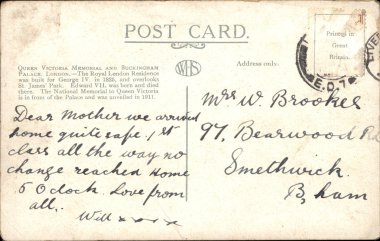 POST CARD.
QUEEN VICTORIA MEMORIAL AND BUCKINGHAM
PALACE, LONDON.—The Royal London Residence
was built for George IV. in 1825, and overlooks
St. James' Park. Edward VII. was born and died
there. The National Memorial to Queen Victoria
is in front of the Palace and was unveiled in 1911.
WHS
Address only.
Printed in
Great
Britain.
E.D.
Dear Mother we arrived
home quite safe, 1st
class all the way no
change reached home
5 O'clock. Love from
all.
Will x x x x
Mrs W. Brookes
97. Bearwood Rd
Smethwick
B,ham